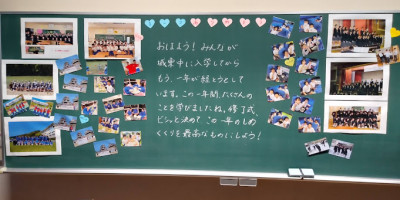 おはよう！みんなが
城東中に入学してから
もう、一年が経とうとして
います。この一年間、たくさんの
ことを学びましたね。修了式、
ビシッと決めて この一年のしめ
くくりを最高なものにしよう！